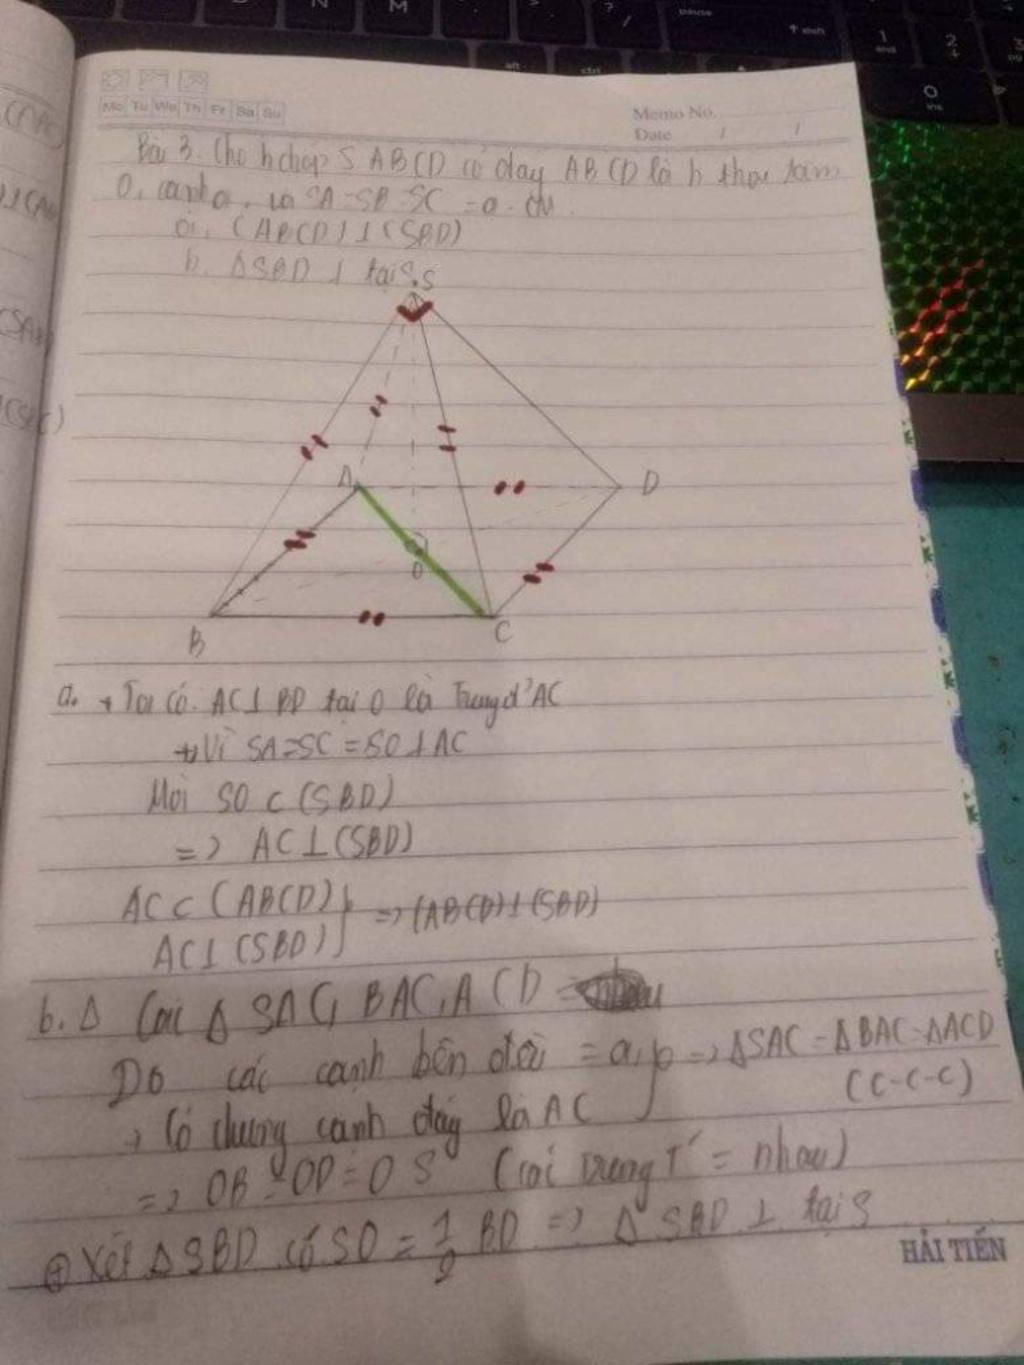 Mo Tu We Th Fr Sa Su
Memo No.
Date / /
Bài 3. Cho h chóp S ABCD có đáy ABCD là h thoi tâm
O, cạnh a, và SA=SB=SC =a. CM.
a, (ABCD)⊥(SBD)
b. ΔSBD ⊥ tại S.
S
A
D
O
B
C
a. + Ta có. AC⊥BD tại O là Trung đ' AC
+ Vì SA=SC =SO⊥AC
Mà SO ⊂ (SBD)
=> AC⊥(SBD)
AC ⊂ (ABCD) } => (ABCD)⊥(SBD)
AC⊥(SBD)
b. Δ Các Δ SAC, BAC, ACD =
Do các cạnh bên đều = a, => ΔSAC = ΔBAC = ΔACD
→ Có chung cạnh đáy là AC (C-C-C)
=> OB = OD = OS (các trung T' = nhau)
⊕ Xét ΔSBD có SO = 1/2 BD => Δ SBD ⊥ tại S
HẢI TIẾN